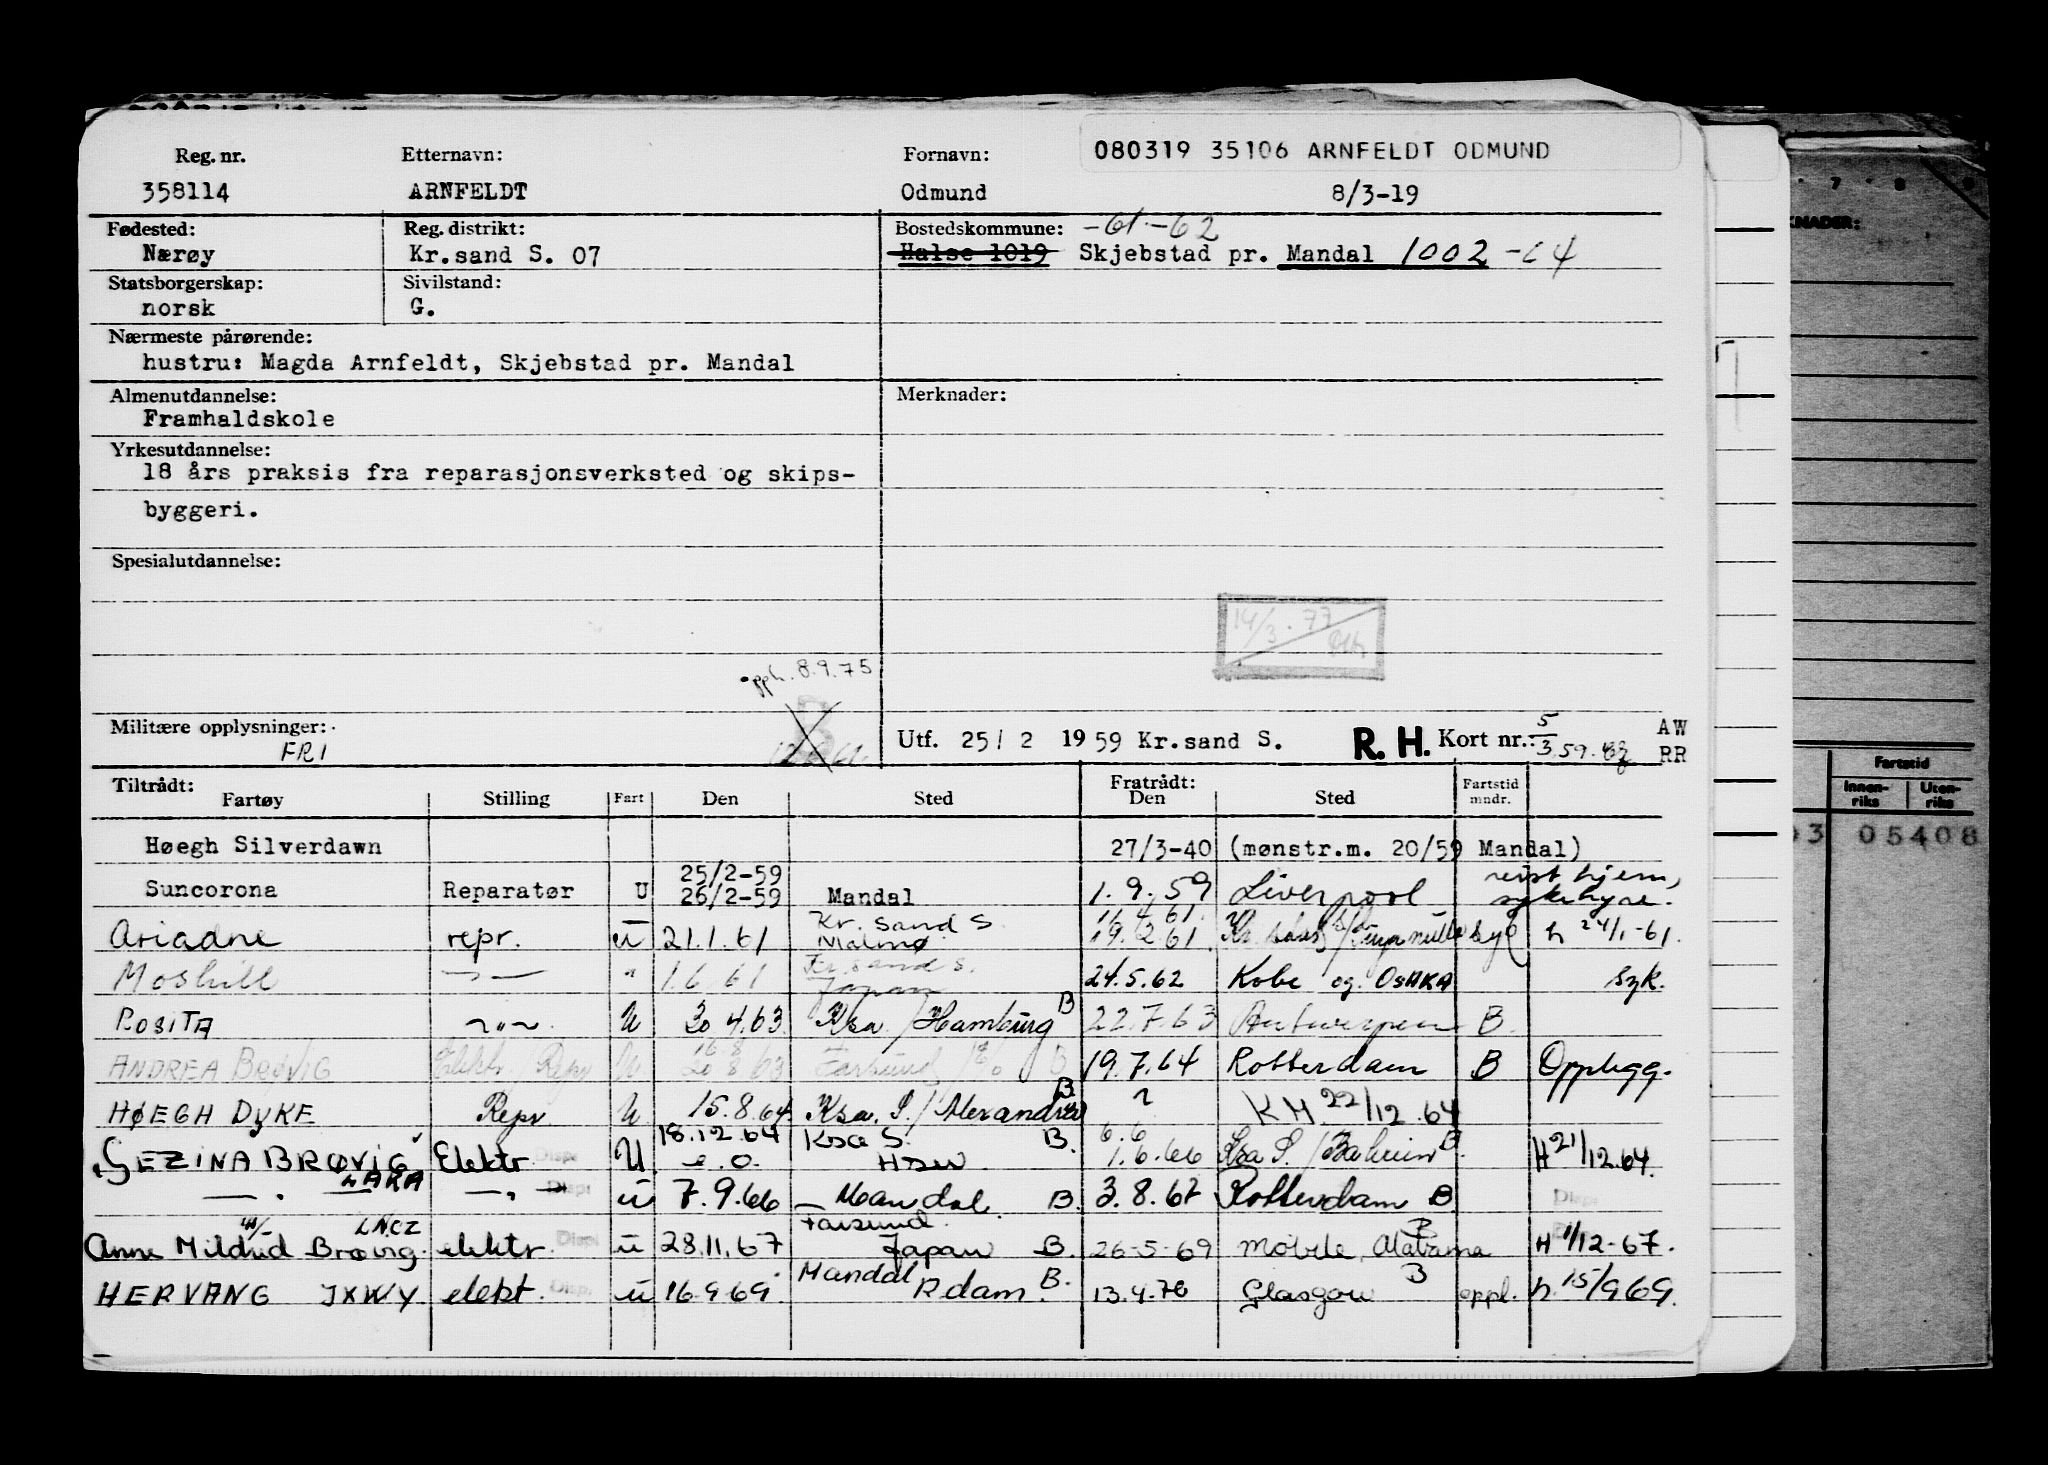 080319 35106 ARNFELDT ODMUND
Reg. nr. Etternavn: Fornavn:
358114 ARNFELDT Odmund 8/3-19
Fødested: Reg. distrikt: Bostedskommune: -61-62
Nærøy Kr.sand S. 07 Halse 1019 Skjebstad pr. Mandal 1002 -64
Statsborgerskap: Sivilstand:
norsk G.
Nærmeste pårørende:
hustru: Magda Arnfeldt, Skjebstad pr. Mandal
Almenutdannelse: Merknader:
Framhaldskole
Yrkesutdannelse:
18 års praksis fra reparasjonsverksted og skips-
byggeri.
Spesialutdannelse:
14/3.77
opph. 8.9.75
Militære opplysninger:
FRI
Utf. 25/ 2 1959 Kr.sand S. R. H. Kort nr.: 5/3 59. AW
RR
Tiltrådt: Fratrådt:
Fartøy Stilling Fart Den Sted Den Sted Fartstid mndr.
Høegh Silverdawn 27/3-40 (mønstr.m. 20/59 Mandal)
25/2-59 reist hjem,
Suncorona Reparatør U 26/2-59 Mandal 1.9.59 Liverpool sykehyre.
Kr. sand S 16.4.61.
Ariadne repr. u 21.1.61 Malmø 19.2 61 h 24/1-61.
Kr.sand S.
Moshill — " — " 1.6 61 Japan 24.5.62 Kobe og OSAKA syk.
ROSITA — " — U 30 4.63. Ksa./Hamburg B 22.7.63 Antwerpen B.
16.8
ANDREA BRØVIG Elektr./Repr U 20 8 63 Farsund B 19.7.64 Rotterdam B Oppligg.
HØEGH DYKE Repr U 15.8.64. Ksa. S./Alexandria B ? KH 22/12.64
18.12.64 Ksa S. B. 6.6
GEZINA BRØVIG Elektr. Disp U. 1.6.66 Ksa S./Bahrein B. H 21/12.64.
LARA
— " — — " — Disp u 7.9.66 Mandal B. 3.8.67 Rotterdam B Disp
LNCZ Farsund.
Anne Mildrid Brøvig. elektr. Disp u 28.11.67 Japan B. 26-5-69 Mobile, Alabama B H 1/12-67.
Mandal
HERVANG JXWY elekt. Disp. u 16.9 69. Rdam. B. 13.4.70 Glasgow B oppl. h. 15/9 69.
KNADER:
7 8 9
Fartstid
Innen-
riks
Uten-
riks
03 05408